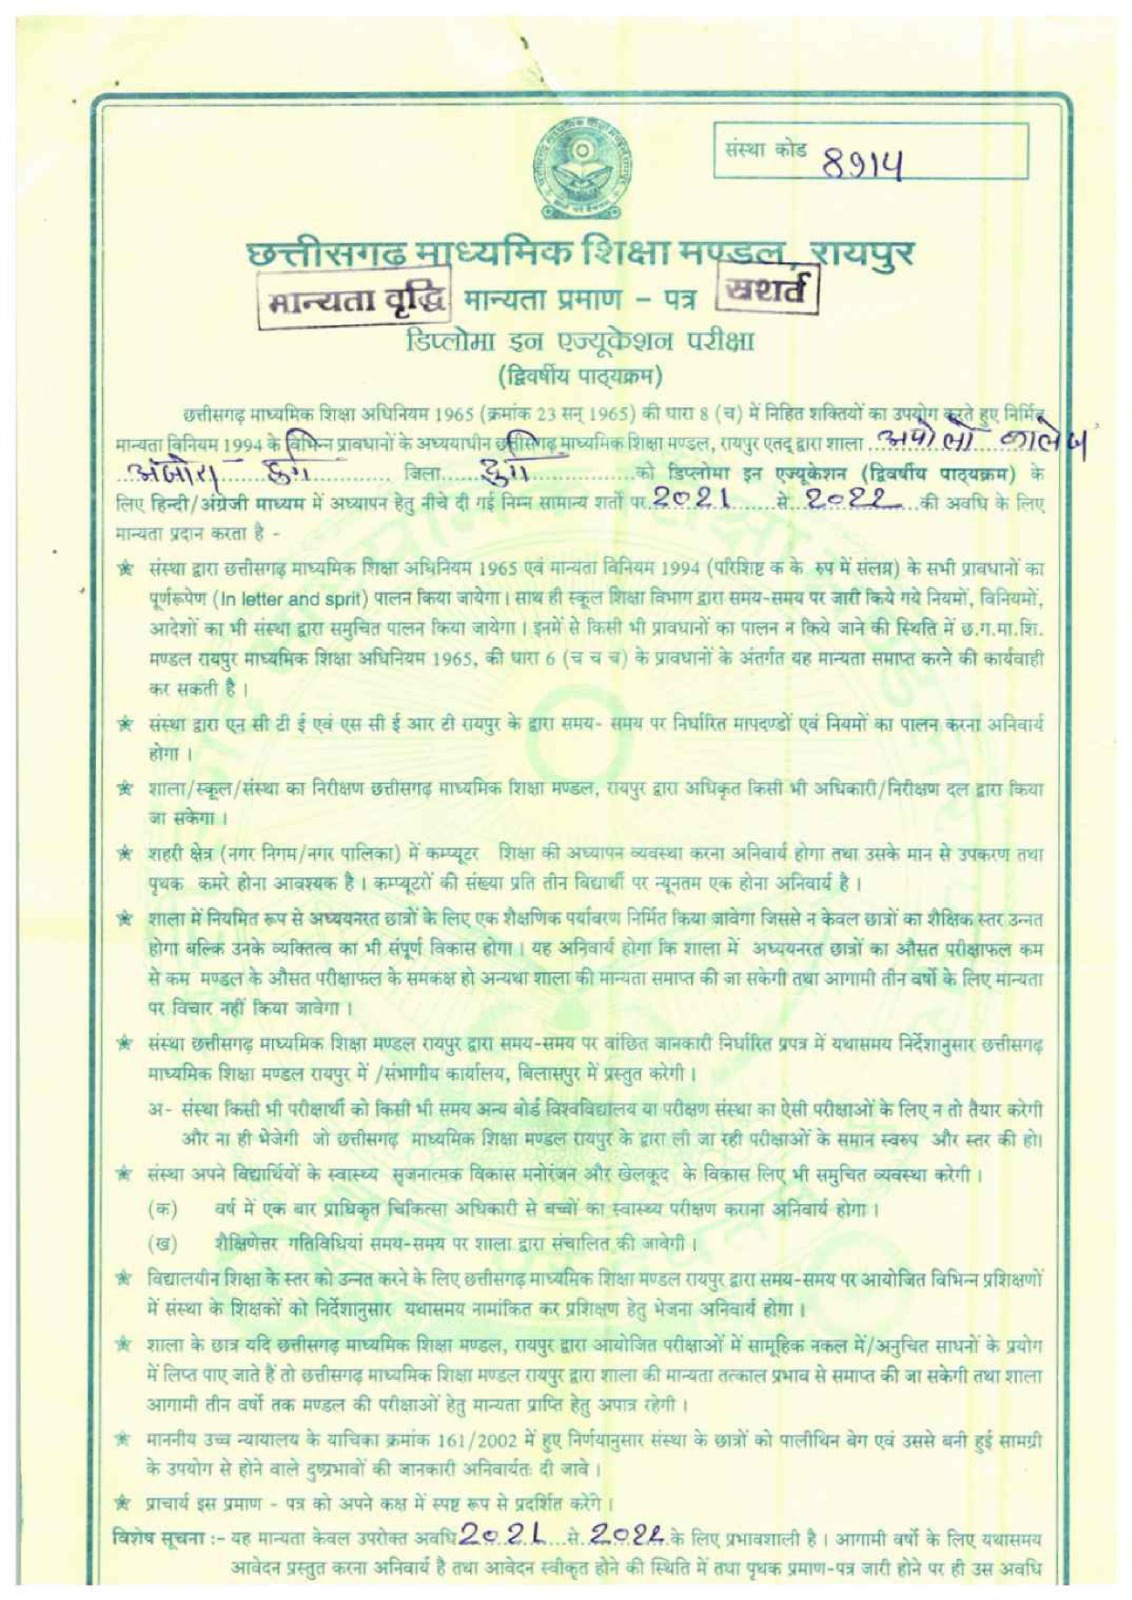 संस्था कोड 8914
छत्तीसगढ़ माध्यमिक शिक्षा मण्डल, रायपुर
मान्यता वृद्धि मान्यता प्रमाण - पत्र सशर्त
डिप्लोमा इन एज्यूकेशन परीक्षा
(द्विवर्षीय पाठ्यक्रम)
छत्तीसगढ़ माध्यमिक शिक्षा अधिनियम 1965 (क्रमांक 23 सन् 1965) की धारा 8 (च) में निहित शक्तियों का उपयोग करते हुए निर्मित
मान्यता विनियम 1994 के विभिन्न प्रावधानों के अध्ययाधीन छत्तीसगढ़ माध्यमिक शिक्षा मण्डल, रायपुर एतद् द्वारा शाला अपोलो कालेज
अंजोरा दुर्ग जिला दुर्ग को डिप्लोमा इन एज्यूकेशन (द्विवर्षीय पाठ्यक्रम) के
लिए हिन्दी/अंग्रेजी माध्यम में अध्यापन हेतु नीचे दी गई निम्न सामान्य शर्तो पर 2021 से 2022 की अवधि के लिए
मान्यता प्रदान करता है -
संस्था द्वारा छत्तीसगढ़ माध्यमिक शिक्षा अधिनियम 1965 एवं मान्यता विनियम 1994 (परिशिष्ट क के रुप में संलग्र) के सभी प्रावधानों का
पूर्णरूपेण (In letter and sprit) पालन किया जायेगा। साथ ही स्कूल शिक्षा विभाग द्वारा समय-समय पर जारी किये गये नियमों, विनियमों,
आदेशों का भी संस्था द्वारा समुचित पालन किया जायेगा। इनमें से किसी भी प्रावधानों का पालन न किये जाने की स्थिति में छ.ग.मा.शि.
मण्डल रायपुर माध्यमिक शिक्षा अधिनियम 1965, की धारा 6 (च च च) के प्रावधानों के अंतर्गत यह मान्यता समाप्त करने की कार्यवाही
कर सकती है।
संस्था द्वारा एन सी टी ई एवं एस सी ई आर टी रायपुर के द्वारा समय- समय पर निर्धारित मापदण्डों एवं नियमों का पालन करना अनिवार्य
होगा।
शाला/स्कूल/संस्था का निरीक्षण छत्तीसगढ़ माध्यमिक शिक्षा मण्डल, रायपुर द्वारा अधिकृत किसी भी अधिकारी/निरीक्षण दल द्वारा किया
जा सकेगा।
शहरी क्षेत्र (नगर निगम/नगर पालिका) में कम्प्यूटर शिक्षा की अध्यापन व्यवस्था करना अनिवार्य होगा तथा उसके मान से उपकरण तथा
पृथक कमरे होना आवश्यक है। कम्प्यूटरों की संख्या प्रति तीन विद्यार्थी पर न्यूनतम एक होना अनिवार्य है।
शाला में नियमित रूप से अध्ययनरत छात्रों के लिए एक शैक्षणिक पर्यावरण निर्मित किया जावेगा जिससे न केवल छात्रों का शैक्षिक स्तर उन्नत
होगा बल्कि उनके व्यक्तित्व का भी संपूर्ण विकास होगा। यह अनिवार्य होगा कि शाला में अध्ययनरत छात्रों का औसत परीक्षाफल कम
से कम मण्डल के औसत परीक्षाफल के समकक्ष हो अन्यथा शाला की मान्यता समाप्त की जा सकेगी तथा आगामी तीन वर्षो के लिए मान्यता
पर विचार नहीं किया जावेगा।
संस्था छत्तीसगढ़ माध्यमिक शिक्षा मण्डल रायपुर द्वारा समय-समय पर वांछित जानकारी निर्धारित प्रपत्र में यथासमय निर्देशानुसार छत्तीसगढ़
माध्यमिक शिक्षा मण्डल रायपुर में /संभागीय कार्यालय, बिलासपुर में प्रस्तुत करेगी।
अ- संस्था किसी भी परीक्षार्थी को किसी भी समय अन्य बोर्ड विश्वविद्यालय या परीक्षण संस्था का ऐसी परीक्षाओं के लिए न तो तैयार करेगी
और ना ही भेजेगी जो छत्तीसगढ़ माध्यमिक शिक्षा मण्डल रायपुर के द्वारा ली जा रही परीक्षाओं के समान स्वरुप और स्तर की हो।
संस्था अपने विद्यार्थियों के स्वास्थ्य सृजनात्मक विकास मनोरंजन और खेलकूद के विकास लिए भी समुचित व्यवस्था करेगी।
(क) वर्ष में एक बार प्राधिकृत चिकित्सा अधिकारी से बच्चों का स्वास्थ्य परीक्षण कराना अनिवार्य होगा।
(ख) शैक्षिणेत्तर गतिविधियां समय-समय पर शाला द्वारा संचालित की जावेगी।
विद्यालयीन शिक्षा के स्तर को उन्नत करने के लिए छत्तीसगढ़ माध्यमिक शिक्षा मण्डल रायपुर द्वारा समय-समय पर आयोजित विभिन्न प्रशिक्षणों
में संस्था के शिक्षकों को निर्देशानुसार यथासमय नामांकित कर प्रशिक्षण हेतु भेजना अनिवार्य होगा।
शाला के छात्र यदि छत्तीसगढ़ माध्यमिक शिक्षा मण्डल, रायपुर द्वारा आयोजित परीक्षाओं में सामूहिक नकल में/अनुचित साधनों के प्रयोग
में लिप्त पाए जाते हैं तो छत्तीसगढ़ माध्यमिक शिक्षा मण्डल रायपुर द्वारा शाला की मान्यता तत्काल प्रभाव से समाप्त की जा सकेगी तथा शाला
आगामी तीन वर्षो तक मण्डल की परीक्षाओं हेतु मान्यता प्राप्ति हेतु अपात्र रहेगी।
माननीय उच्च न्यायालय के याचिका क्रमांक 161/2002 में हुए निर्णयानुसार संस्था के छात्रों को पालीथिन बेग एवं उससे बनी हुई सामग्री
के उपयोग से होने वाले दुष्प्रभावों की जानकारी अनिवार्यतः दी जावे।
प्राचार्य इस प्रमाण - पत्र को अपने कक्ष में स्पष्ट रूप से प्रदर्शित करेंगे।
विशेष सूचना :- यह मान्यता केवल उपरोक्त अवधि 2021 से 2022 के लिए प्रभावशाली है। आगामी वर्षो के लिए यथासमय
आवेदन प्रस्तुत करना अनिवार्य है तथा आवेदन स्वीकृत होने की स्थिति में तथा पृथक प्रमाण-पत्र जारी होने पर ही उस अवधि